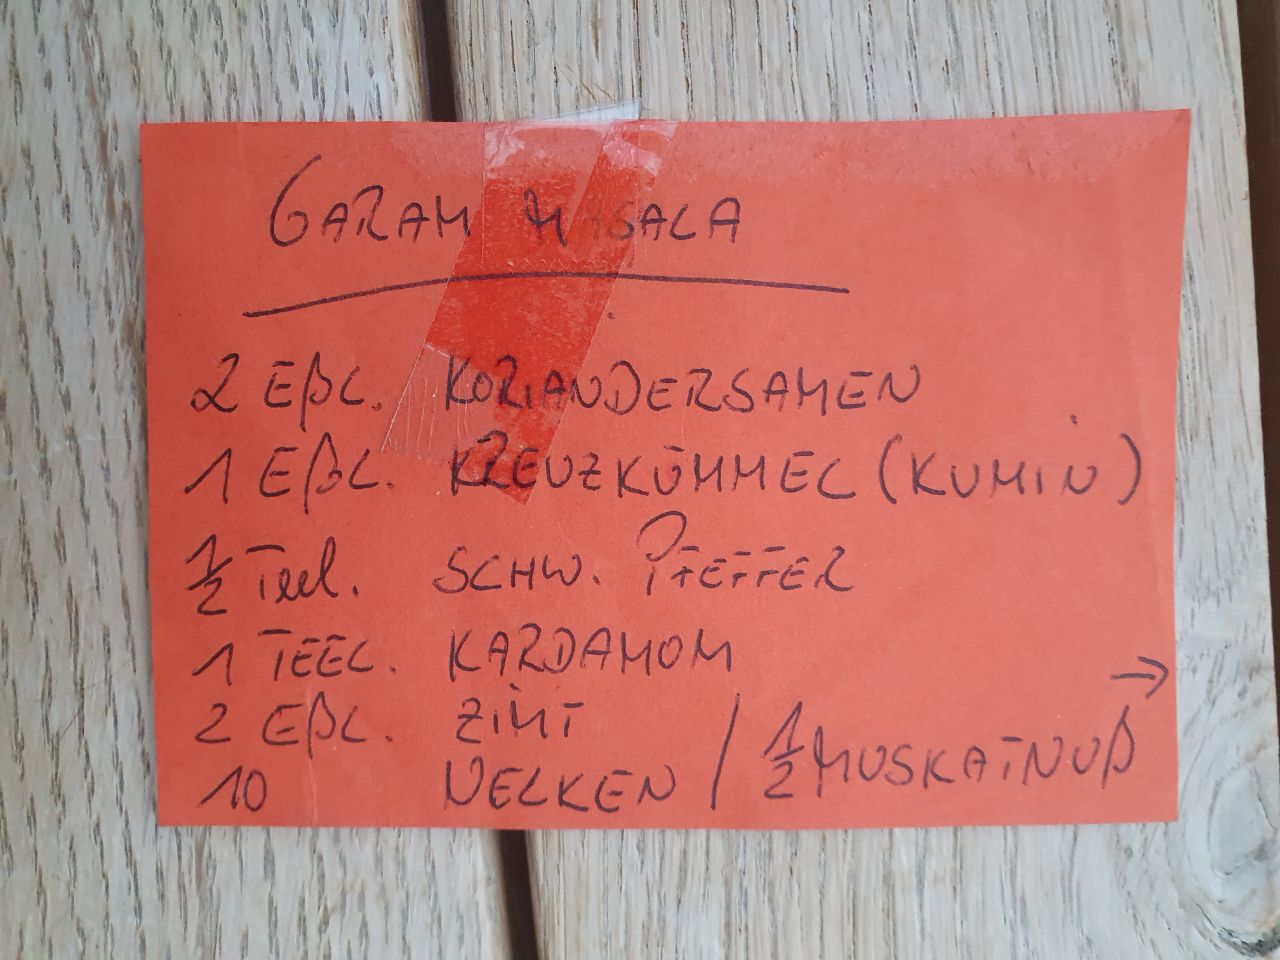 GARAM MASALA
2 Eßl. KORIANDERSAMEN
1 Eßl. KREUZKÜMMEL (KUMIN)
½ Teel. SCHW. PFEFFER
1 TEEL. KARDAMOM
2 Eßl. ZIMT →
10 NELKEN / ½ MUSKATNUß